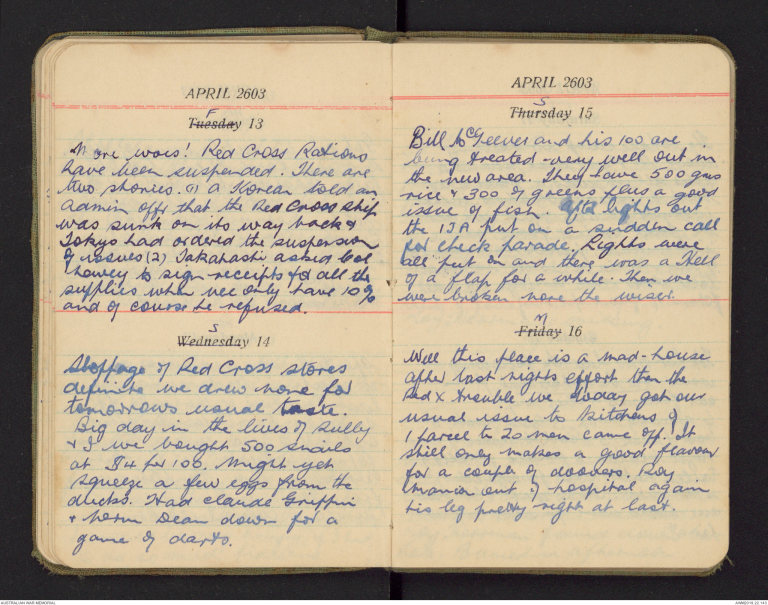 APRIL 2603
F
Tuesday 13
More wars! Red Cross Rations
have been suspended. There are
two stories. (1) a Korean told an
admin offr that the Red Cross ship
was sunk on its way back &
Tokyo had ordered the suspension
of issues (2) Takahashi asked Col
to sign receipts for all the
supplies when we only have 10%
and of course he refused.
S
Wednesday 14
Stoppage of Red Cross stores
definite we drew none for
tomorrows usual taste.
Big day in the lives of Sully
& I we bought 500 snails
at $4 for 100. Might yet
squeeze a few eggs from the
ducks. Had Claude Griffin
& Norm Dean down for a
game of darts.
APRIL 2603
S
Thursday 15
Bill McGeever and his 100 are
being treated very well out in
the new area. They have 500 gms
rice & 300 of greens plus a good
issue of fish. After lights out
the IJA put on a sudden call
for check parade, Lights were
all put on and there was a Hell
of a flap for a while. Then we
were broken none the wiser.
M
Friday 16
Well this place is a mad-house
after last nights effort then the
Red X trouble we today got our
usual issue to Kitchens of
1 parcel to 20 men came off. It
still only makes a good flavour
for a couple of doovers. Roy
out of hospital again
his leg pretty right at last.
AUSTRALIAN WAR MEMORIAL